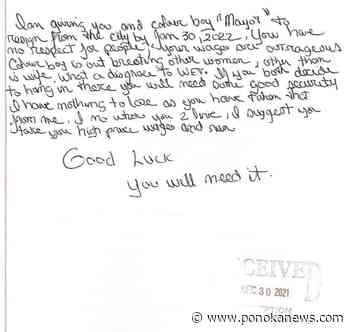 I am giving you and colour boy "Mayor" to
resign from the city by Jan 30, 2022. You have
no respect for people, your wages are outrageous
Colour boy is out breeting other women, other than
is wife, what a disgrace to WET. If you both decide
to hang in there you will need some good security
I have nothing to lose as you have taken that
from me. I no where you 2 live, I suggest you
take you high price wages and run
Good Luck
you will need it.
CEIVED
DEC 30 2021
www.ponokanews.com